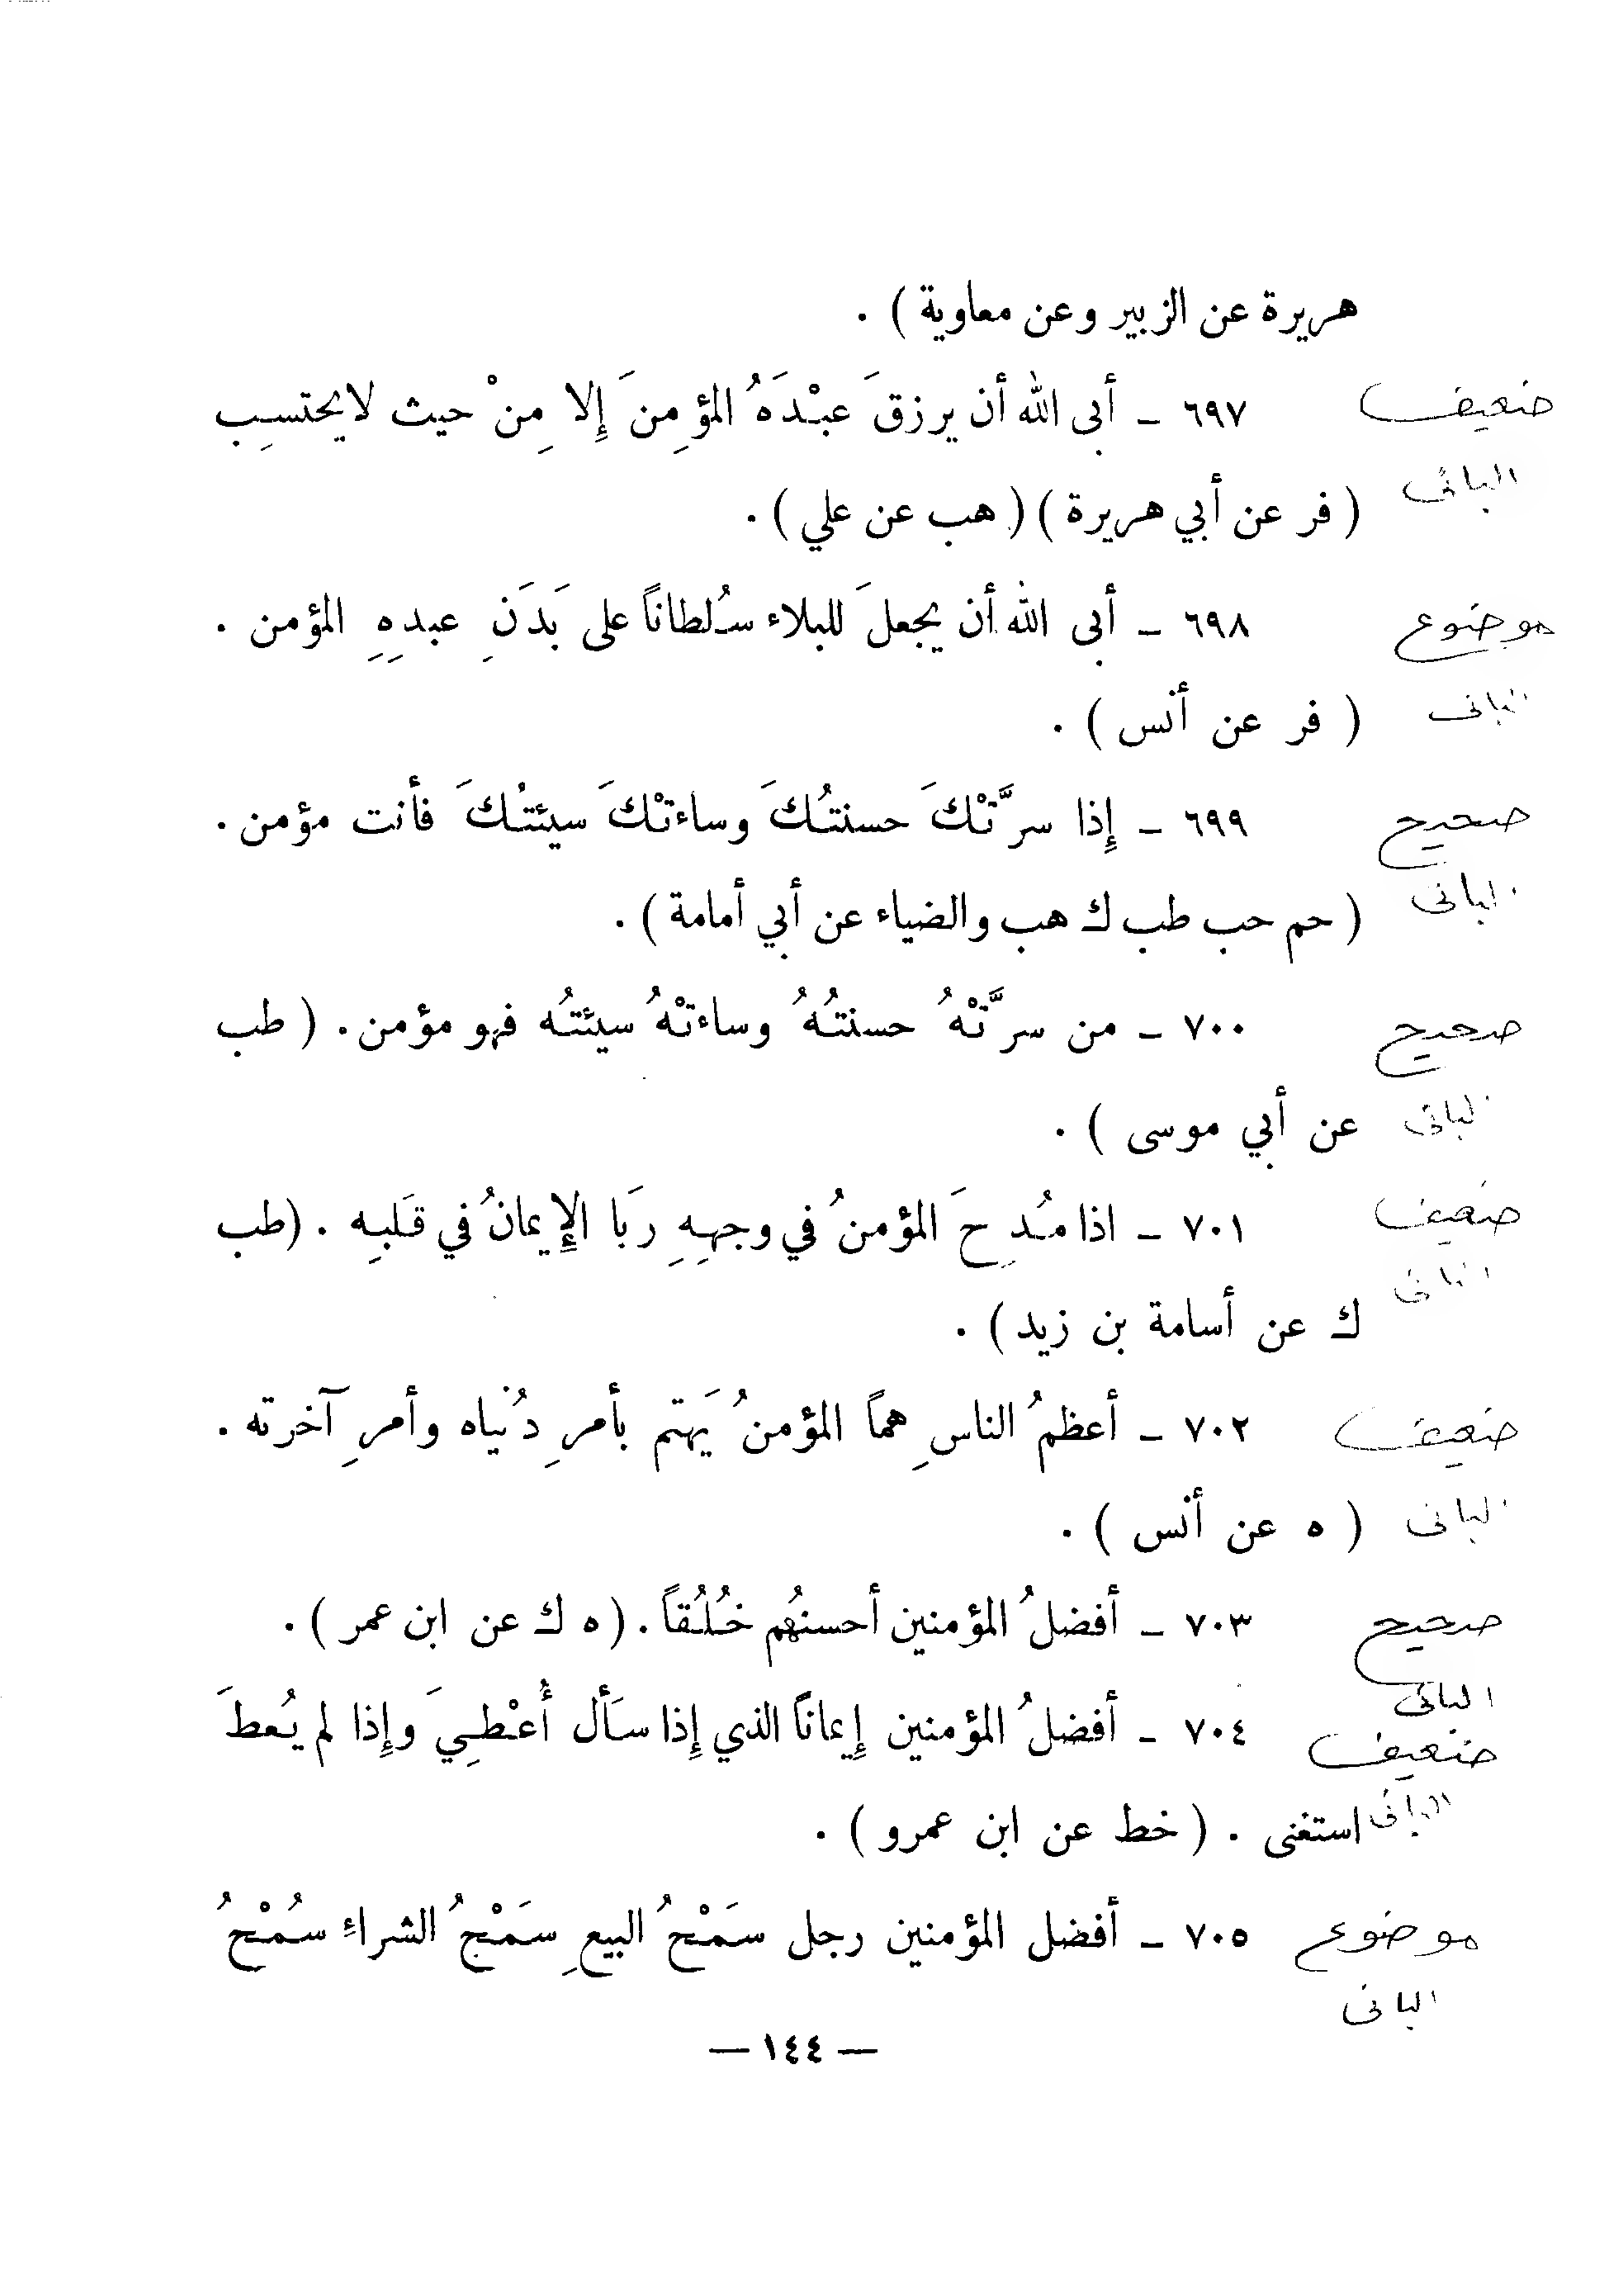 هريرة عن الزبير وعن معاوية ) .
ضعيف
٦٩٧ ـ أبى الله أن يرزقَ عبْدَهُ المؤمِنَ إِلا مِنْ حيث لايحتسِب
البانى
( فر عن أبي هريرة ) ( هب عن علي ) .
موضوع
٦٩٨ ـ أبى الله أن يجعلَ للبلاء سُلطاناً على بَدَنِ عبدِهِ المؤمن .
البانى
( فر عن أنس ) .
صحيح
٦٩٩ ـ إِذا سرَّتْكَ حسنتُكَ وساءتْكَ سيئتُكَ فأنت مؤمن .
البانى
( حم حب طب ك هب والضياء عن أبي أمامة ) .
صحيح
٧٠٠ ـ من سرَّتْهُ حسنتُهُ وساءتْهُ سيئتُه فهو مؤمن . ( طب
البانى
عن أبي موسى ) .
ضعيف
٧٠١ ـ اذا مُدِحَ المؤمنُ في وجهِهِ رَبَا الإِيمانُ في قَلبِه . (طب
البانى
ك عن أسامة بن زيد ) .
ضعيف
٧٠٢ ـ أعظمُ الناسِ همّاً المؤمنُ يَهتم بأمرِ دُنياه وأمرِ آخرته .
البانى
( ه عن أنس ) .
صحيح
٧٠٣ ـ أفضلُ المؤمنين أحسنُهم خُلُقاً . ( ه ك عن ابن عمر ) .
البانى
ضعيف
٧٠٤ ـ أفضلُ المؤمنين إِيماناً الذي إِذا سَأل أُعْطِيَ وإِذا لم يُعطَ
البانى
استغنى . ( خط عن ابن عمرو ) .
موضوع
٧٠٥ ـ أفضل المؤمنين رجل سَمْحُ البيعِ سَمْحُ الشراءِ سُمْحُ
البانى
— ١٤٤ —